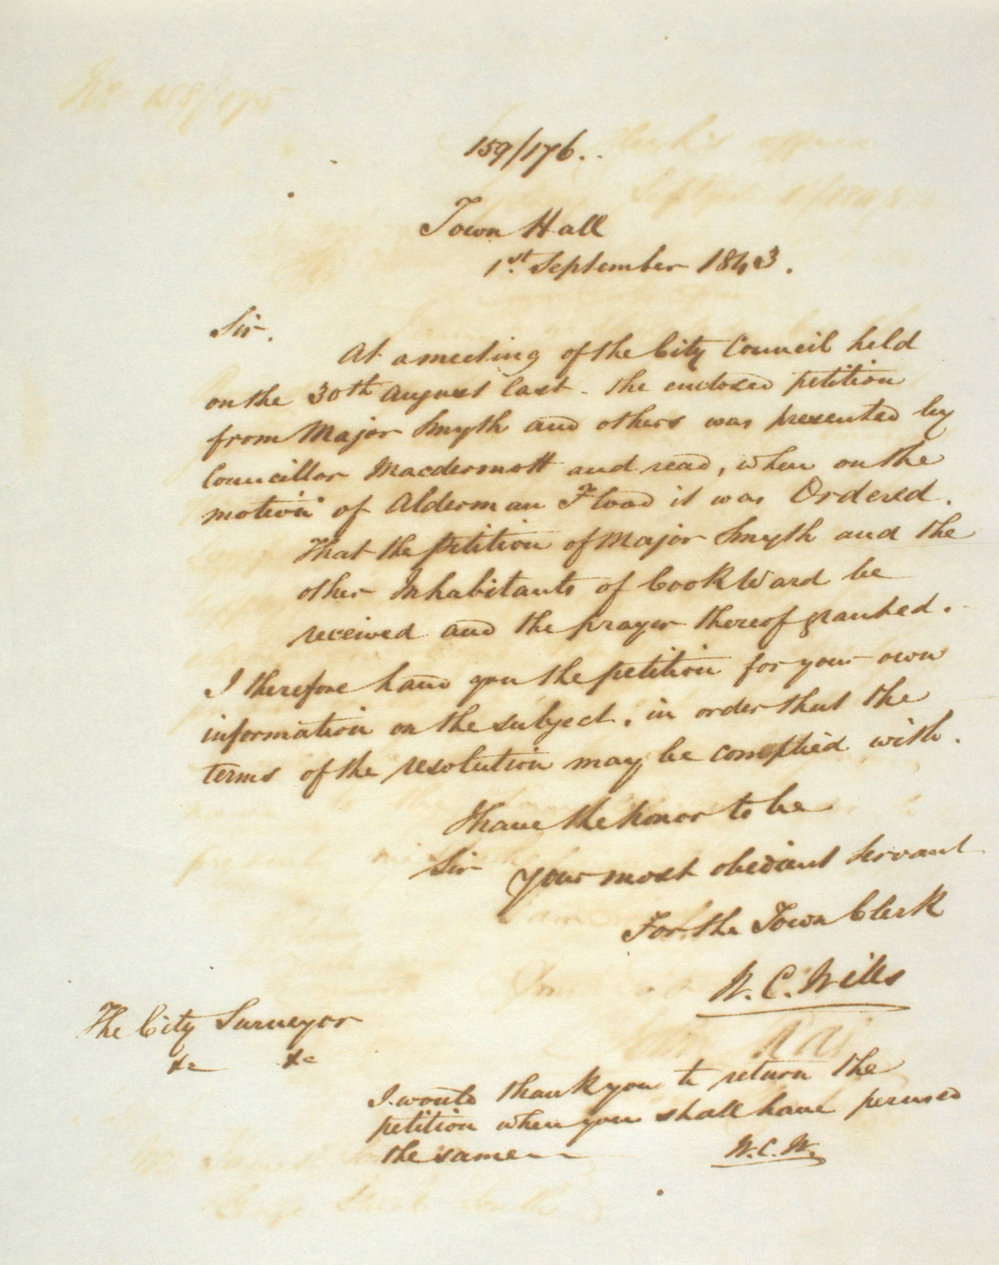 159/176.
Town Hall
1st September 1843.
Sir.
At a meeting of the City Council held
on the 30th August last - the enclosed petition
from Major Smyth and others was presented by
Councillor Macdermott and read, when on the
motion of Alderman Flood it was Ordered.
That the petition of Major Smyth and the
other Inhabitants of Cook Ward be
received and the prayer thereof granted.
I therefore hand you the petition for your own
information on the subject, in order that the
terms of the resolution may be complied with.
I have the honor to be
Sir your most obedient Servant
For the Town Clerk
W. C. Wills
The City Surveyor
&c &c
I would thank you to return the
petition when you shall have perused
the same --
W. C. W.